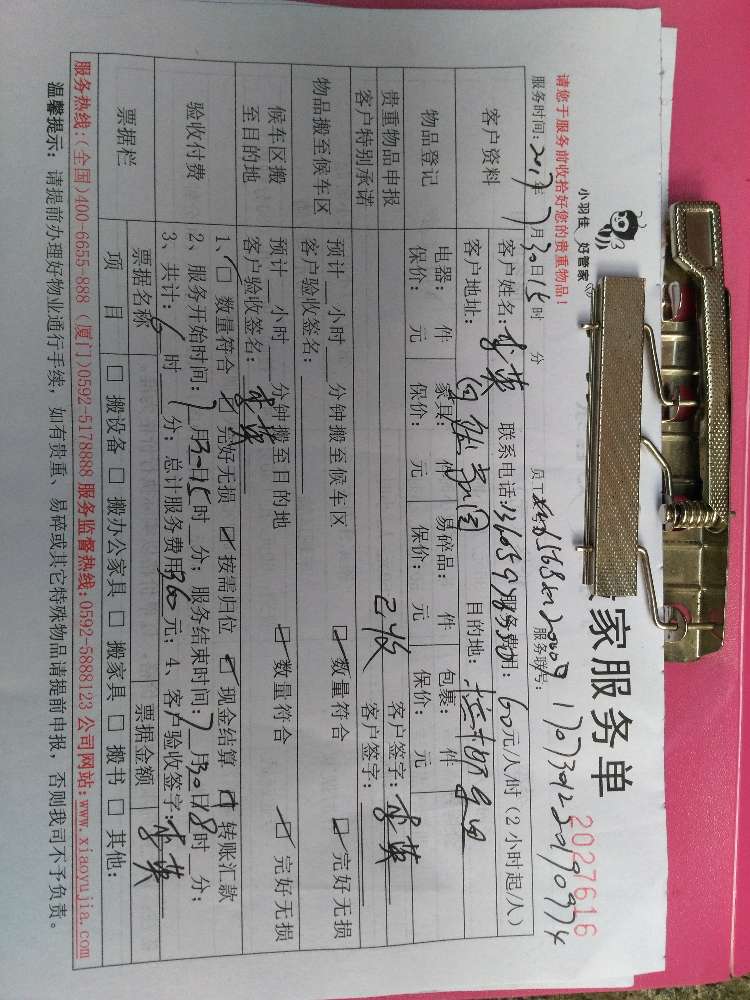 小羽佳 好管家
家服务单
2027616
请您于服务前收拾好您的贵重物品！
服务时间：2017年7月30日15时 分 员工 服务联号：
客户资料 客户姓名：李英 联系电话： 服务费用：60元/人/时（2小时起/人）
客户地址： 目的地：
物品登记 电器： 件 家具： 件 易碎品： 件 包裹： 件
保价： 元 保价： 元 保价： 元 保价： 元
贵重物品申报 客户签字：李英
客户特别承诺 已收 客户签字：
物品搬至候车区 预计__小时__分钟搬至候车区 ☑数量符合 ☑完好无损
客户验收签名：
候车区搬至目的地 预计__小时__分钟搬至目的地 ☑数量符合 ☑完好无损
客户验收签名：李英
验收付费 1、☑数量符合 ☑完好无损 ☑按需归位 ☑现金结算 ☑转账汇款
2、服务开始时间：7月30日15时__分；服务结束时间：7月30日18时__分；
3、共计：6时__分；总计服务费用360元；4、客户验收签字：李英
票据栏 票据名称 票据金额
项 目 □搬设备 □搬办公家具 □搬家具 □搬书 □其他：
服务热线：（全国）400-6655-888（厦门）0592-5178888 服务监督热线：0592-5888123 公司网站：www.xiaoyujia.com
温馨提示：请提前办理好物业通行手续，如有贵重、易碎或其它特殊物品请提前申报，否则我司不予负责。